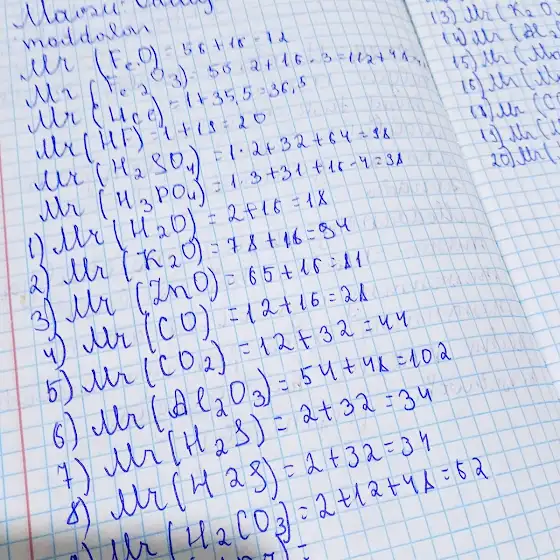 Mavzu:
moddalar
Mr (FeO) = 56+16=72
Mr (Fe2O3) = 56·2+16·3=112+48
Mr (HCl) = 1+35,5=36,5
Mr (HF) = 1+19=20
Mr (H2SO4) = 1·2+32+64=98
Mr (H3PO4) = 1·3+31+16·4=98
1) Mr (H2O) = 2+16=18
2) Mr (K2O) = 78+16=94
3) Mr (ZnO) = 65+16=81
4) Mr (CO) = 12+16=28
5) Mr (CO2) = 12+32=44
6) Mr (Al2O3) = 54+48=102
7) Mr (H2S) = 2+32=34
8) Mr (H2S) = 2+32=34
Mr (H2CO3) = 2+12+48=62
13) Mr (K2O
14) Mr
15) Mr
16) Mr
18) Mr
19) Mr
20) Mr